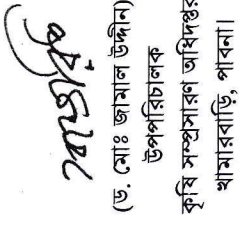 (ড. মোঃ জামাল উদ্দীন)
উপপরিচালক
কৃষি সম্প্রসারণ অধিদপ্তর
খামারবাড়ি, পাবনা।